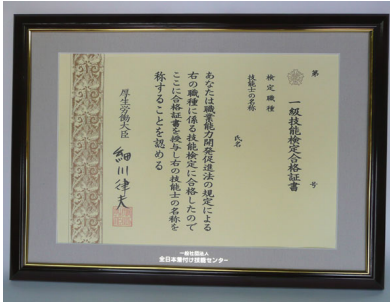 第　号
一級技能検定合格証書
検定職種
技能士の名称
氏名
あなたは職業能力開発促進法の規定による
右の職種に係る技能検定に合格したので
ここに合格証書を授与し右の技能士の名称を
称することを認める
厚生労働大臣
細川律夫
一般社団法人
全日本着付け技能センター